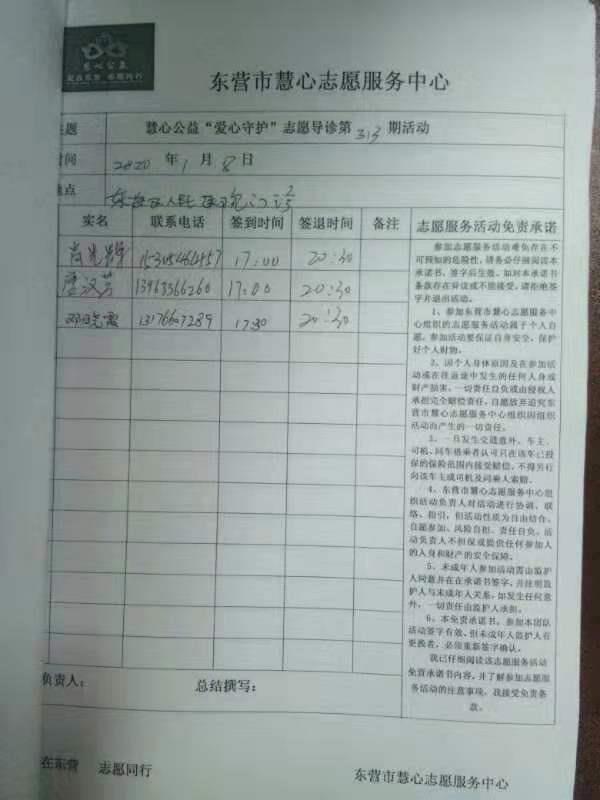 慧心公益
爱在东营 志愿同行
东营市慧心志愿服务中心
主题 慧心公益“爱心守护”志愿导诊第313期活动
时间 2020年1月8日
地点 东营区人民医院门诊
实名 联系电话 签到时间 签退时间 备注 志愿服务活动免责承诺
17:00 20:30
唐汉芳 17:00 20:30
邓晓霞 17:30 20:30
参加志愿服务活动难免存在不
可预知的危险性，请务必仔细阅读本
承诺书，签字后生效。如对本承诺书
条款存在异议或不能接受，请拒绝签
字并退出活动。
1、参加东营市慧心志愿服务中
心组织的志愿服务活动属于个人自
愿。参加活动要保证自身安全，保护
好个人财物。
2、因个人身体原因及在参加活
动或在往返途中发生的任何人身或
财产损害，一切责任自负或由侵权人
承担完全赔偿责任，自愿放弃追究东
营市慧心志愿服务中心组织因组织
活动而产生的一切责任。
3、一旦发生交通意外，车主、
司机、同车搭乘者认可只在该车已投
保的保险范围内接受赔偿，不得另行
向该车主或司机及同乘人索赔。
4、东营市慧心志愿服务中心组
织活动负责人对活动进行协调、联
络、指引，但活动性质为自由结合、
自愿参加、风险自担、责任自负。活
动负责人不担保或提供任何参加人
的人身和财产的安全保障。
5、未成年人参加活动需由监护
人同意并在在承诺书签字，并注明监
护人与未成年人关系，如发生任何意
外，一切责任由监护人承担。
6、本免责承诺书，参加本团队
活动签字有效，但未成年人监护人有
更换者，必须重新签字确认。
我已仔细阅读该志愿服务活动
免责承诺书内容，并了解参加志愿服
务活动的注意事项，我接受免责条
款。
负责人： 总结撰写：
在东营 志愿同行 东营市慧心志愿服务中心